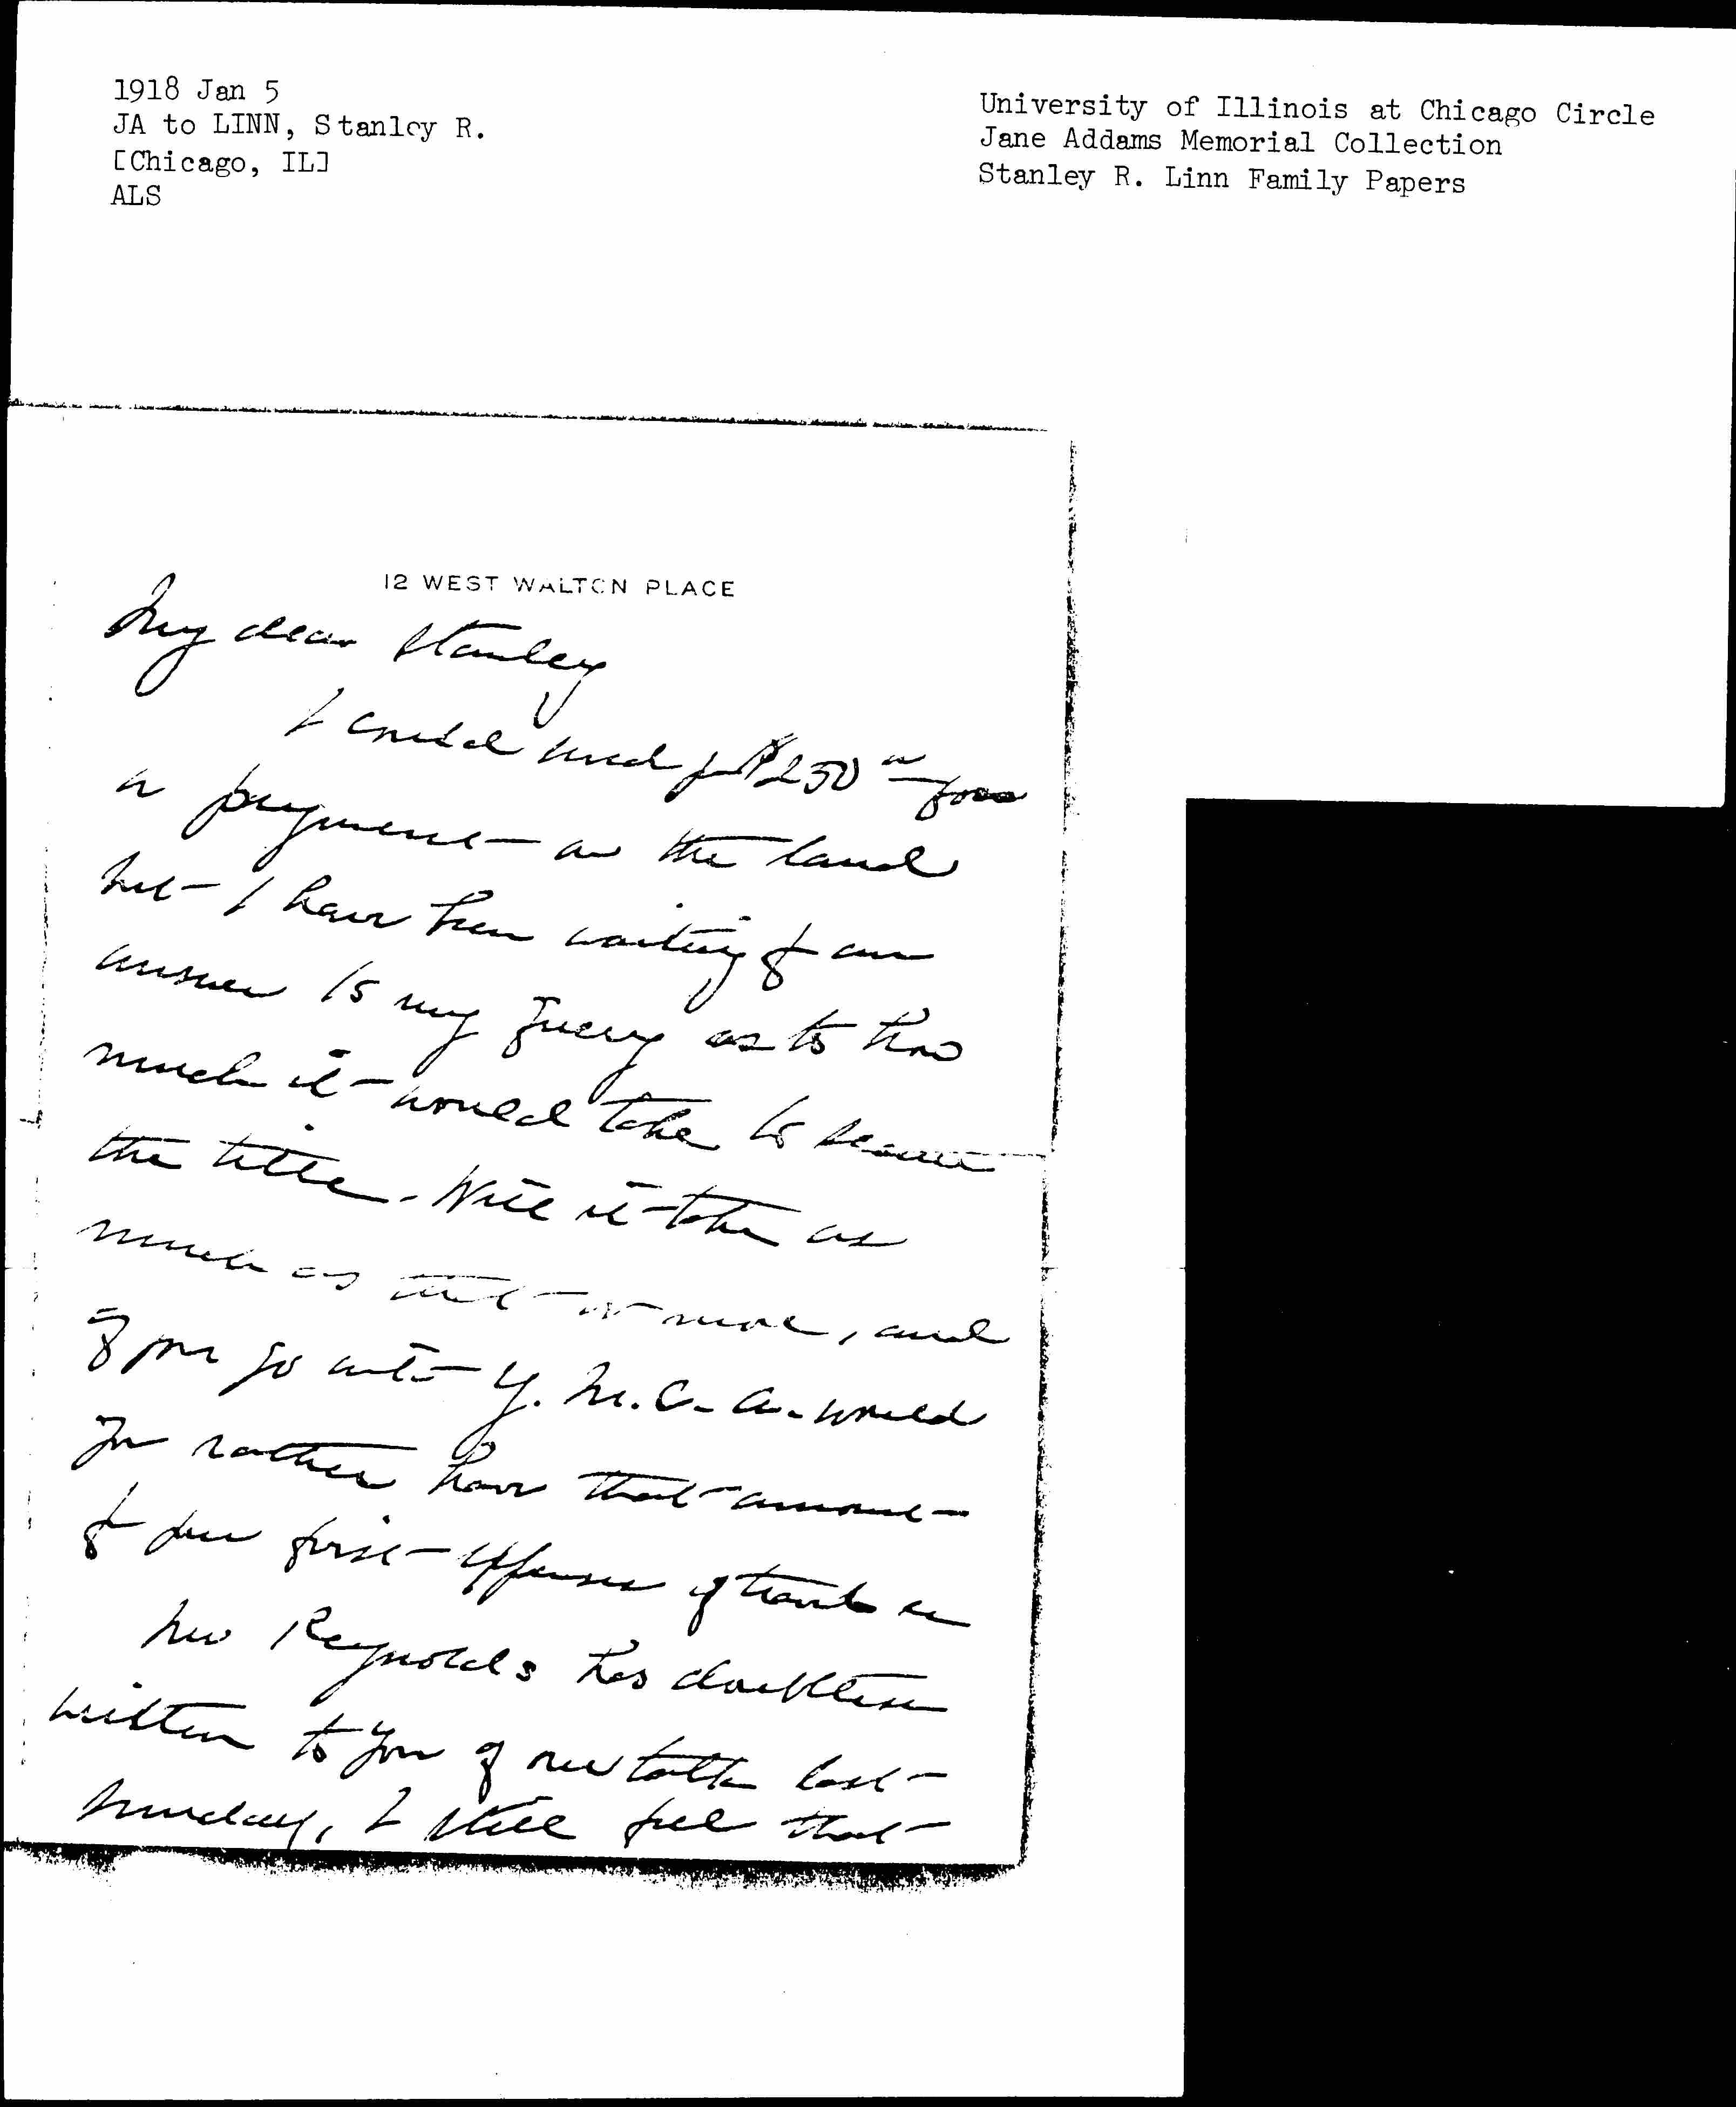 1918 Jan 5
JA to LINN, Stanley R.
[Chicago, IL]
ALS
University of Illinois at Chicago Circle
Jane Addams Memorial Collection
Stanley R. Linn Family Papers
12 WEST WALTON PLACE
My dear Stanley
I could send $250
a payment on the land
but I have been waiting for an
answer to my query as to how
much it would take to secure
the title. Will it take as
much as that or more, and
if you go into Y. M. C. A. would
you rather have that amount
for your first expenses
Mr Reynolds has doubtless
written to you of our talk last
Sunday, I still feel that